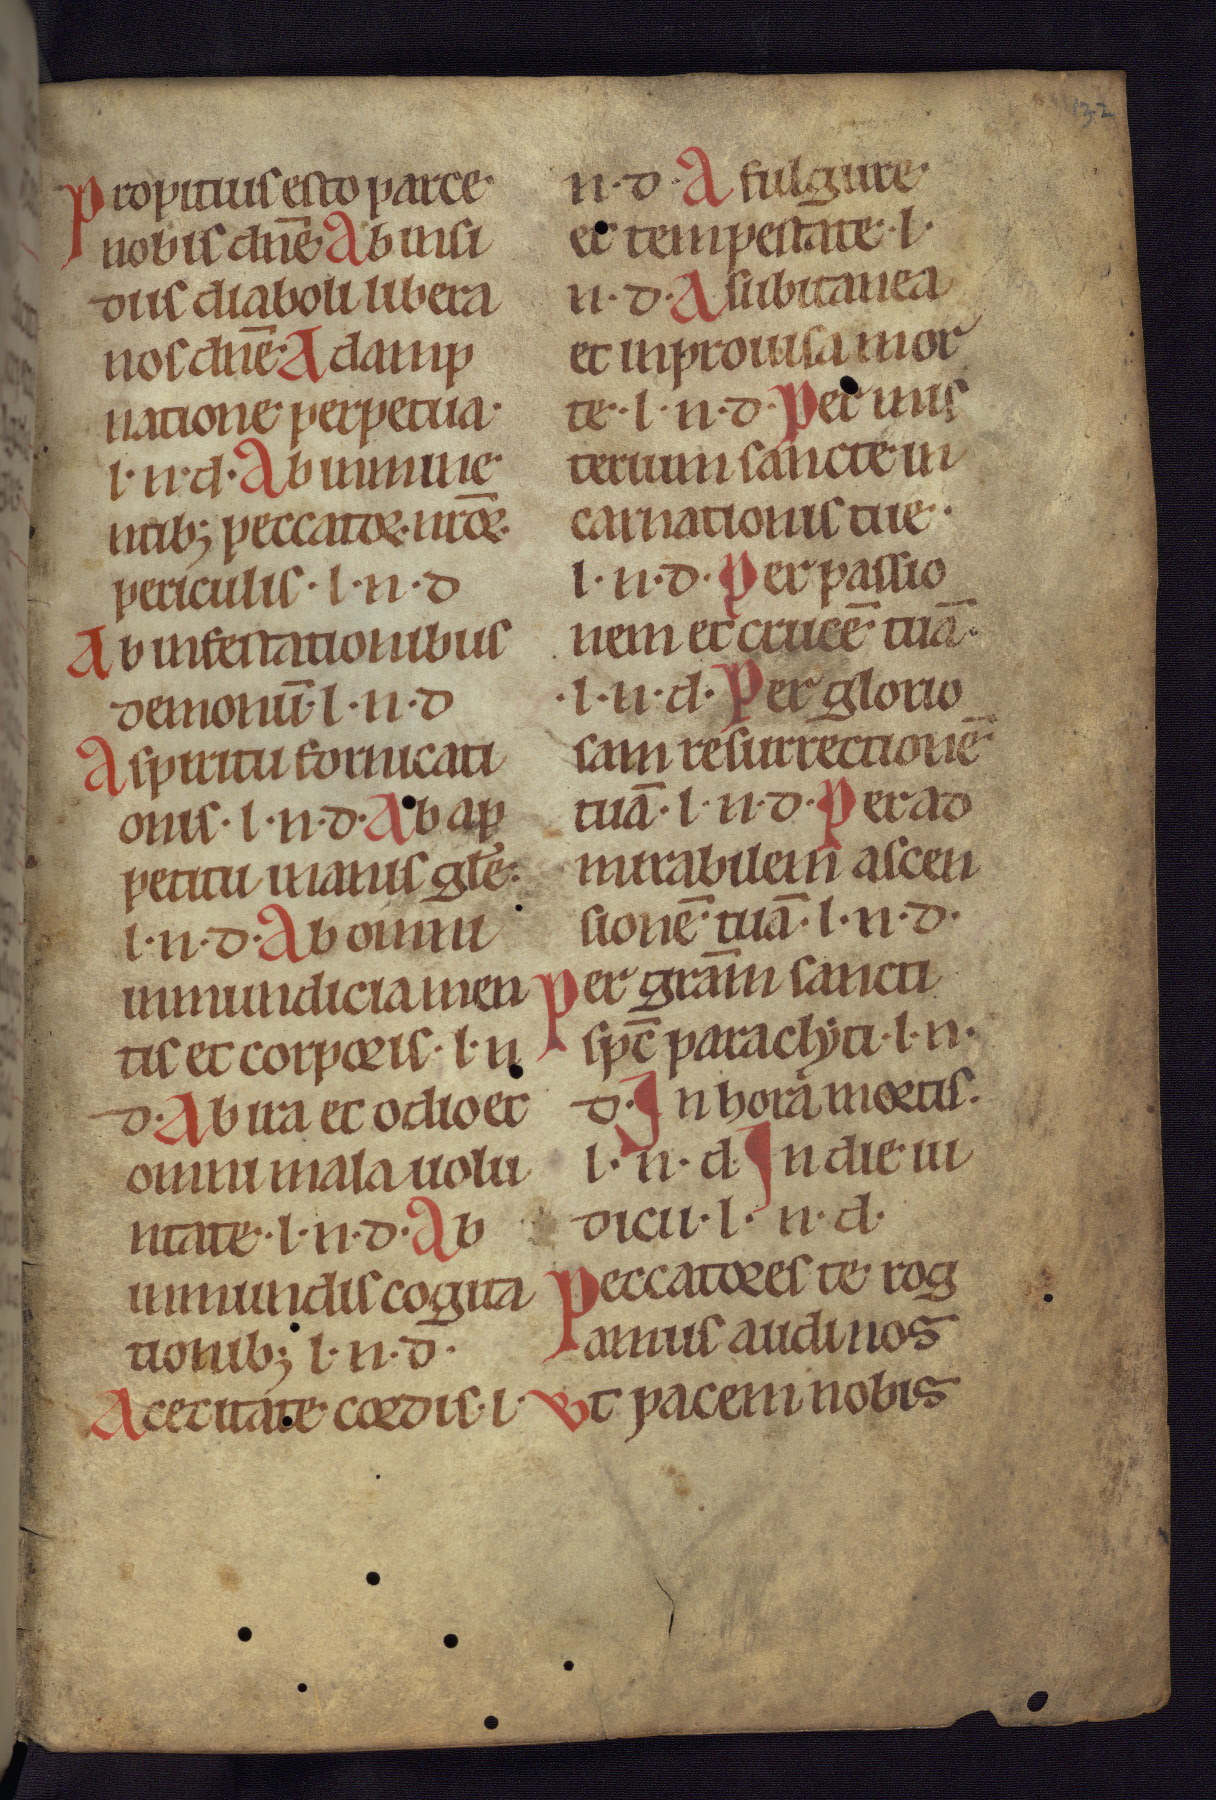 132
Propitius esto parce
nobis dn̄e Ab insi
diis diaboli libera
nos dn̄e. A damp
natione perpetua.
l. n. d. Ab inmine
ntib; peccatoꝝ. nr̄oꝝ.
periculis. l. n. d
Ab infestationibus
demonū. l. n. d
A spiritu fornicati
onis. l. n. d. Ab ap
petitu inanis gl̄e.
l. n. d. Ab omni
inmundicia men
tis et corporis. l. n
d. Ab ira et odio et
omni mala uolu
ntate. l. n. d. Ab
inmundis cogita
tionib; l. n. d.
A cecitate cordis. l.
n. d. A fulgure
et tempestate. l.
n. d. A subitanea
et inprouisa mor
te. l. n. d. Per mis
terium sancte in
carnationis tue.
l. n. d. Per passio
nem et crucē tuā.
l. n. d. Per glorio
sam resurrectionē
tuā. l. n. d. Per ad
mirabilem ascen
sionē tuā. l. n. d.
Per grām sancti
spc̄ paraclyti. l. n.
d. In hora mortis.
l. n. d In die iu
dicii. l. n. d.
Peccatores te rog
amus audi nos
Vt pacem nobis